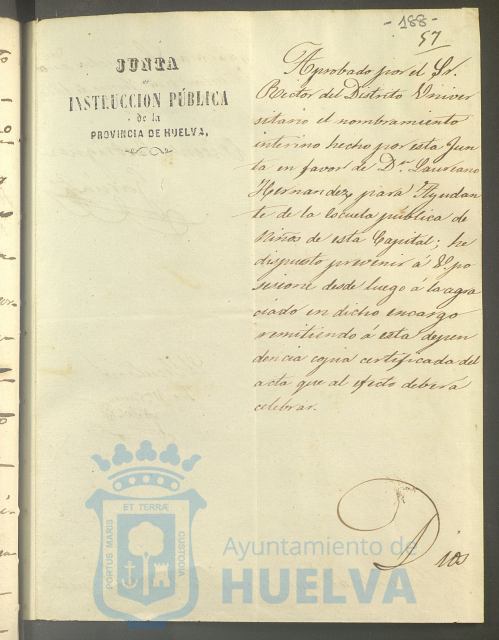 -188-
57
JUNTA
DE
INSTRUCCION PÚBLICA
de la
PROVINCIA DE HUELVA.
Aprobado por el Sr.
Rector del Distrito Univer
sitario el nombramiento
interino hecho por esta Jun
ta en favor de Dn. Laureano
Hernandez para Ayudan
te de la Escuela publica de
Niños de esta Capital; he
dispuesto prevenir á V. po
sesione desde luego á la agra
ciado en dicho encargo
remitiendo á esta depen
dencia copia certificada del
acta que al efecto deberá
celebrar.
Dios
PORTUS MARIS
ET TERRÆ
CUSTODIA
Ayuntamiento de
HUELVA